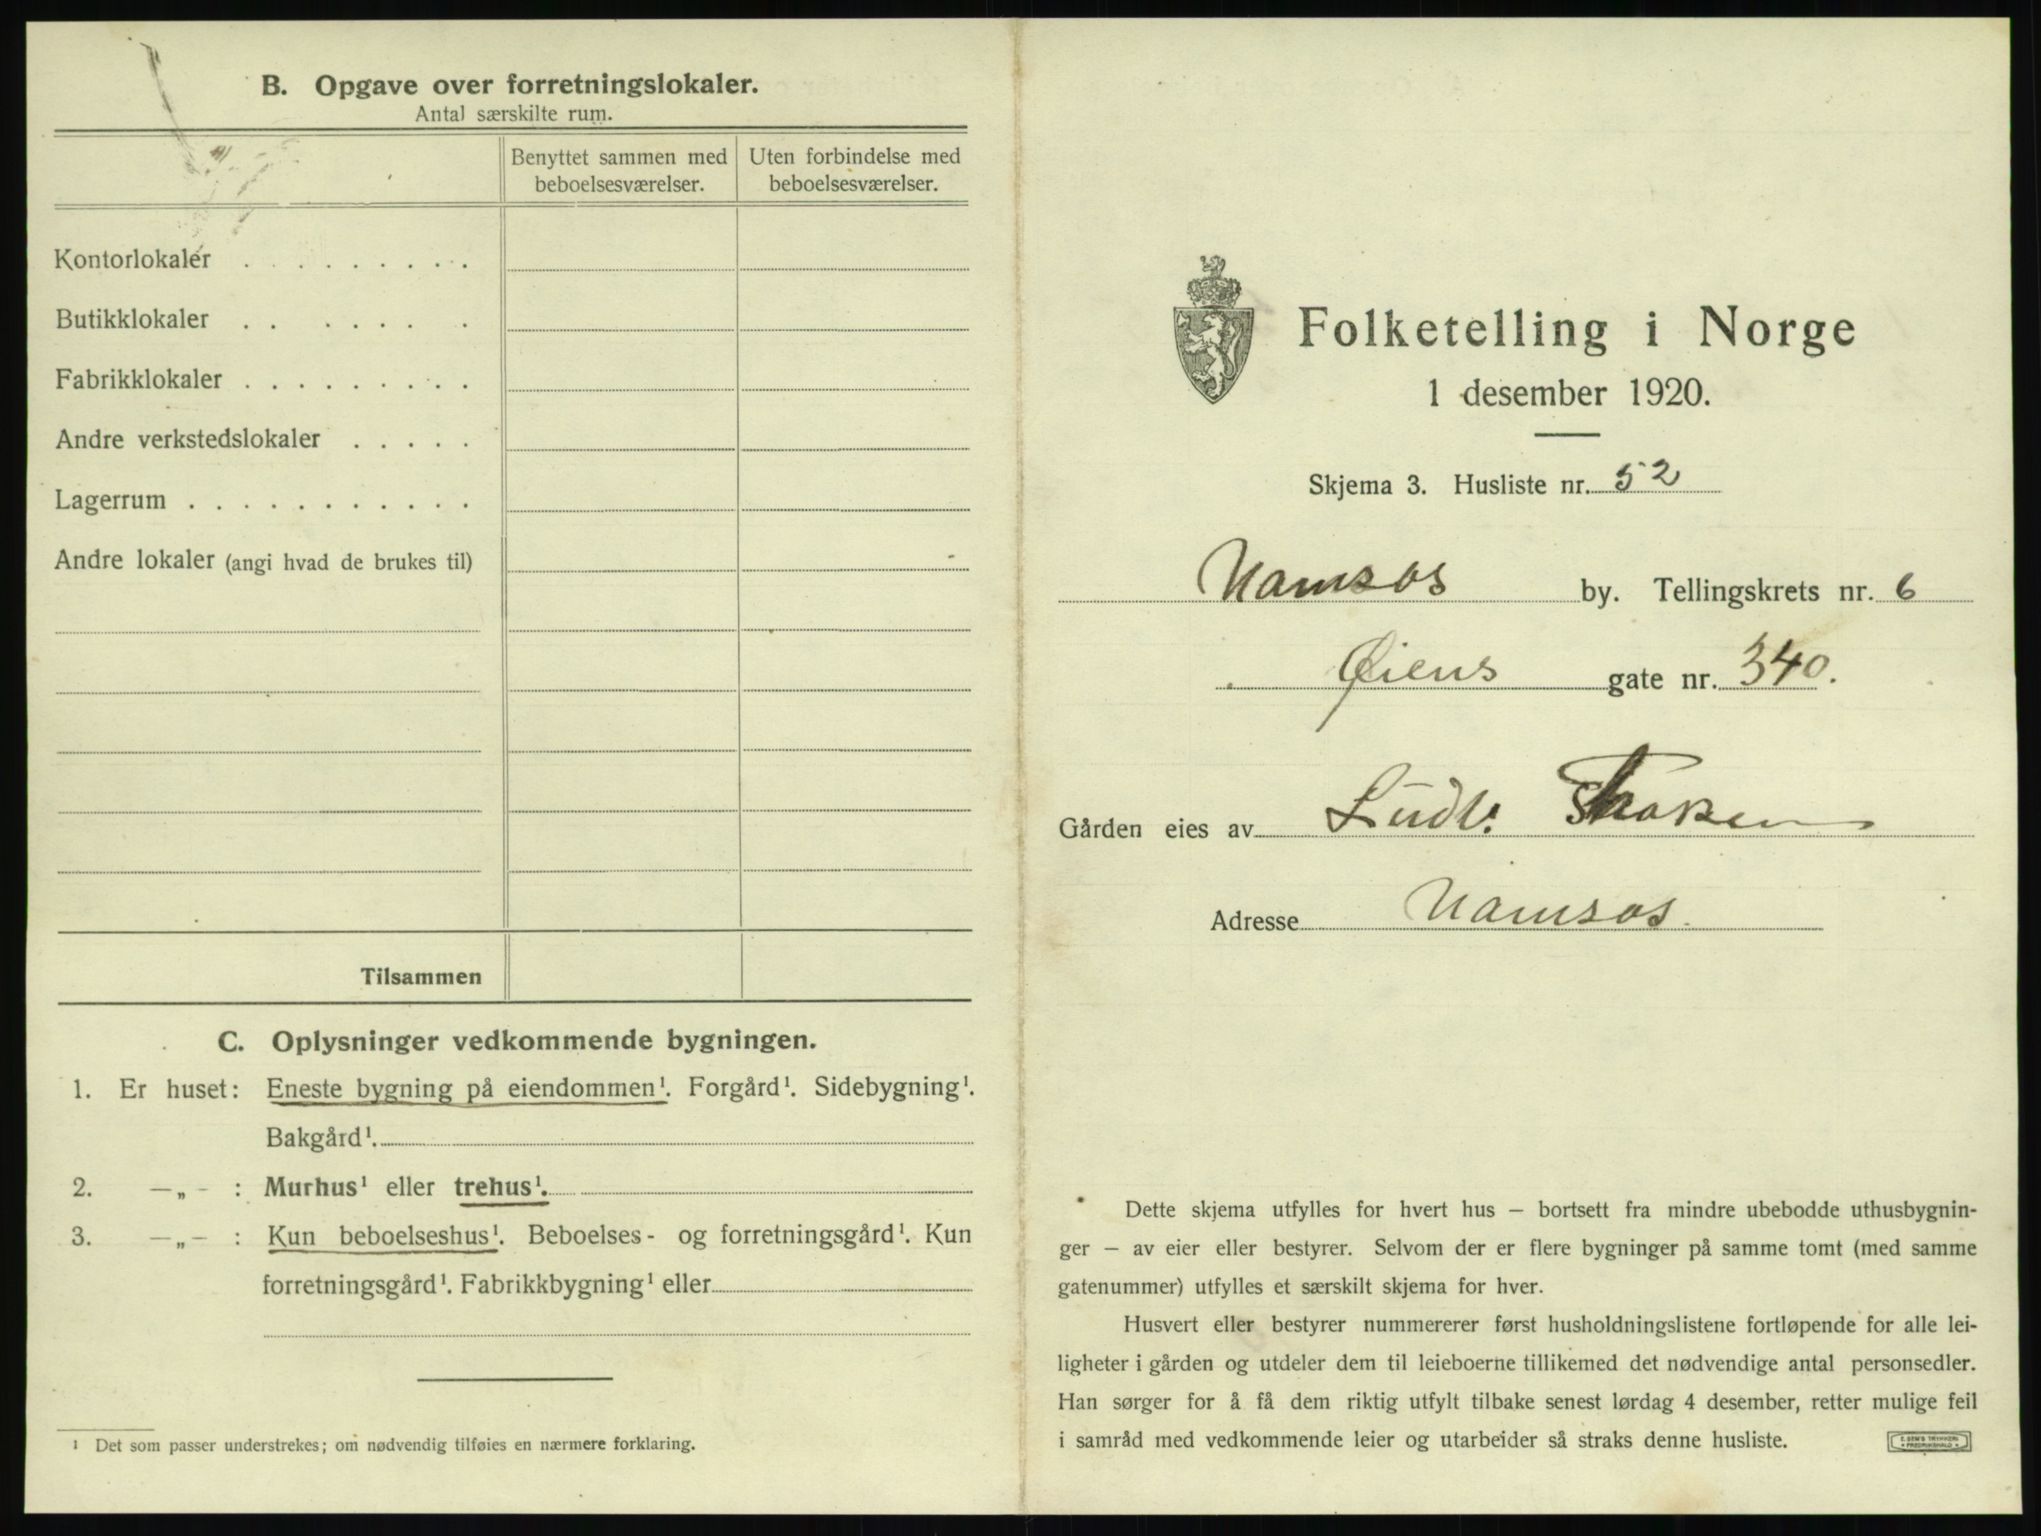 B. Opgave over forretningslokaler.
Antal særskilte rum.
Benyttet sammen med beboelsesværelser.
Uten forbindelse med beboelsesværelser.
Kontorlokaler . . . . . . . . .
Butikklokaler . . . . . . .
Fabrikklokaler . . . . . . . . .
Andre verkstedslokaler . . . . .
Lagerrum . . . . . . . . . . .
Andre lokaler (angi hvad de brukes til)
Tilsammen
C. Oplysninger vedkommende bygningen.
1. Er huset: Eneste bygning på eiendommen¹. Forgård¹. Sidebygning¹.
Bakgård¹.
2. —„— : Murhus¹ eller trehus¹.
3. —„— : Kun beboelseshus¹. Beboelses- og forretningsgård¹. Kun
forretningsgård¹. Fabrikkbygning¹ eller
¹ Det som passer understrekes; om nødvendig tilføies en nærmere forklaring.
Folketelling i Norge
1 desember 1920.
Skjema 3. Husliste nr. 52
Namsos by. Tellingskrets nr. 6
Øiens gate nr. 340.
Gården eies av Ludv.
Adresse Namsos.
Dette skjema utfylles for hvert hus – bortsett fra mindre ubebodde uthusbygnin-
ger – av eier eller bestyrer. Selvom der er flere bygninger på samme tomt (med samme
gatenummer) utfylles et særskilt skjema for hver.
Husvert eller bestyrer nummererer først husholdningslistene fortløpende for alle lei-
ligheter i gården og utdeler dem til leieboerne tillikemed det nødvendige antal personsedler.
Han sørger for å få dem riktig utfylt tilbake senest lørdag 4 desember, retter mulige feil
i samråd med vedkommende leier og utarbeider så straks denne husliste.